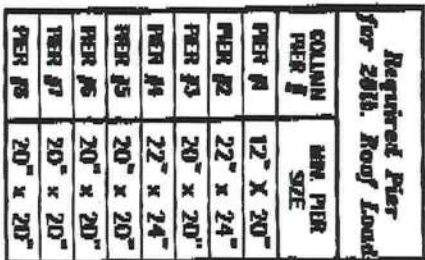 Required Pier
for 20lb. Roof Load
COLUMN PIER # MIN. PIER SIZE
PIER #1 12" X 20"
PIER #2 22" x 24"
PIER #3 20" x 20"
PIER #4 22" x 24"
PIER #5 20" x 20"
PIER #6 20" x 20"
PIER #7 20" x 20"
PIER #8 20" x 20"